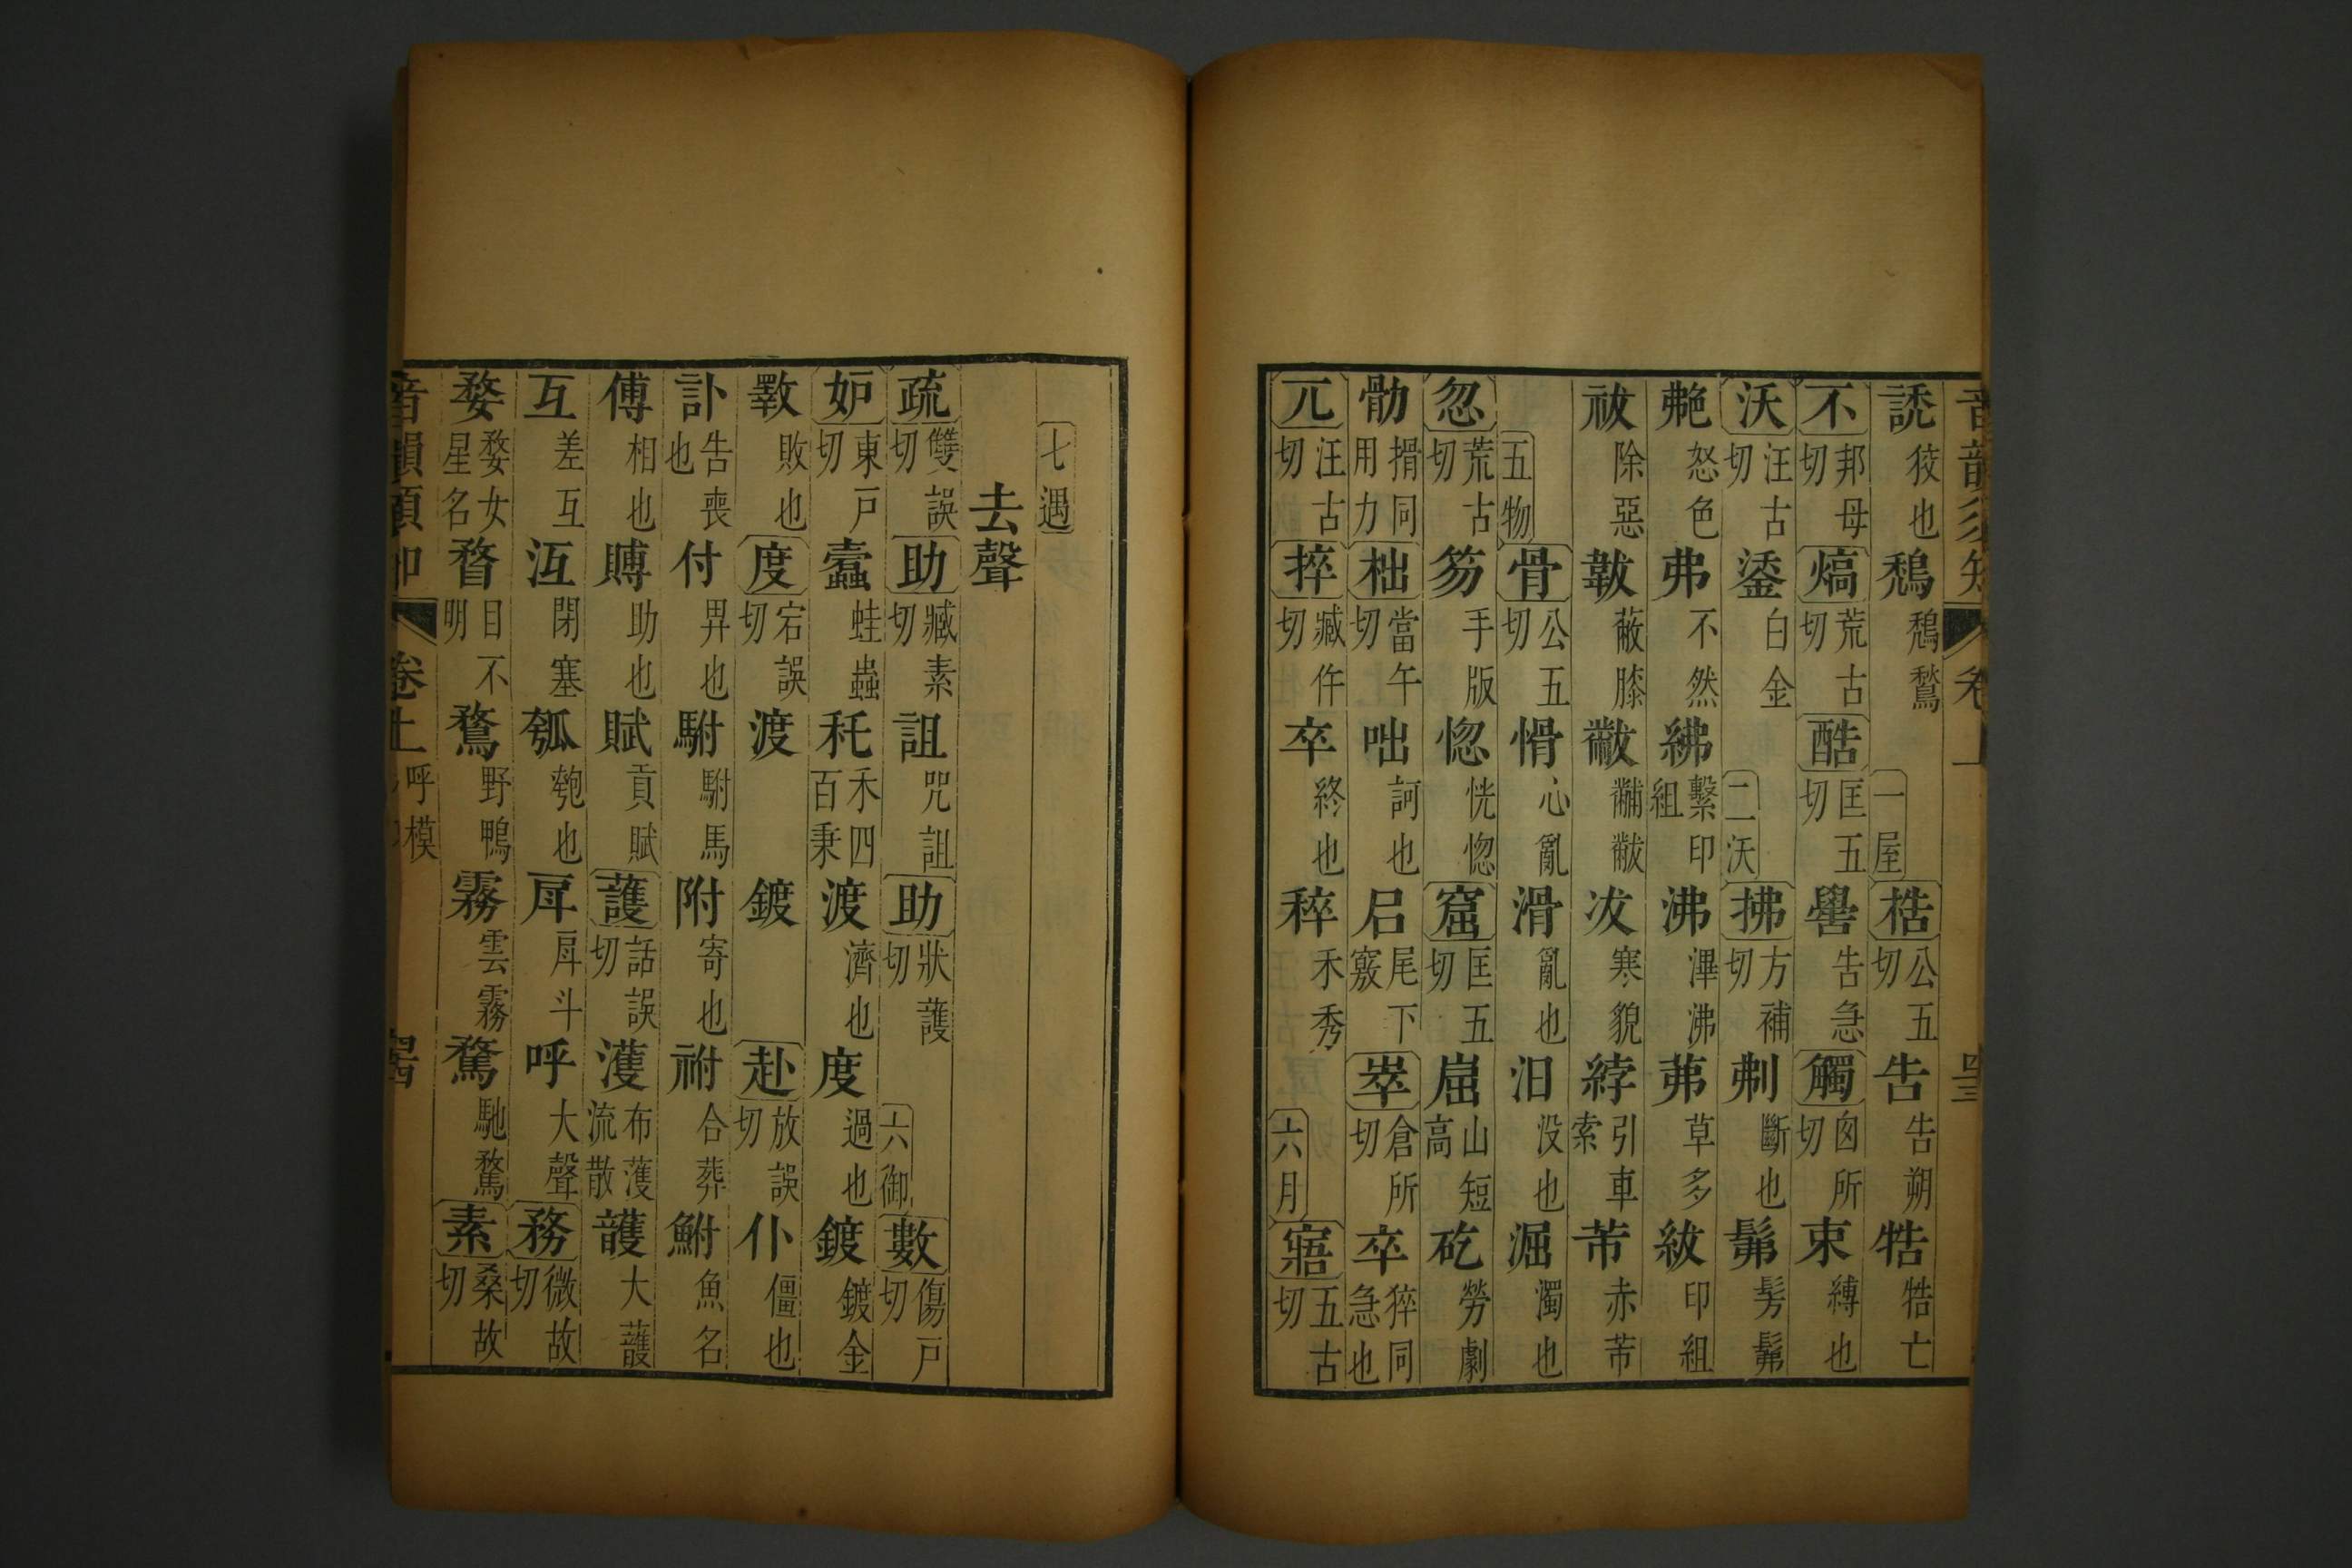 音韻須知 卷上
誘 狡也 鵚 鵚鶖 一屋 梏 公五切 告 告朔 牿 牿亡
不 邦母切 熇 荒古切 酷 匡五切 嚳 告急 觸 囪所切 束 縛也
沃 汪古切 鋈 白金 二沃 拂 方補切 刜 斷也 髴 髣髴
艴 怒色 弗 不然 紼 繫印組 沸 滭沸 茀 草多 紱 印組
祓 除惡 韍 蔽膝 黻 黼黻 冹 寒貌 綍 引車索 芾 赤芾
五物 骨 公五切 愲 心亂 滑 亂也 汩 没也 淈 濁也
忽 荒古切 笏 手版 惚 恍惚 窟 匡五切 崫 山短高 矻 勞劇
劮 搰同用力 柮 當午切 咄 訶也 㞒 尾下竅 崒 倉所切 卒 猝同急也
兀 汪古切 捽 臧仵切 卒 終也 稡 禾秀 六月 寤 五古切
七遇
去聲
疏 雙誤切 助 臧素切 詛 咒詛 助 狀護切 六御 數 傷戸切
妒 東戸切 蠹 蛀蟲 秅 禾四百秉 渡 濟也 度 過也 鍍 鍍金
斁 敗也 度 宕誤切 渡 鍍 赴 放誤切 仆 僵也
訃 告喪也 付 畀也 駙 駙馬 附 寄也 祔 合葬 鮒 魚名
傅 相也 賻 助也 賦 貢賦 護 話誤切 濩 布濩流散 頀 大頀
互 差互 沍 閉塞 瓠 匏也 戽 戽斗 呼 大聲 務 微故切
婺 婺女星名 瞀 目不明 鶩 野鴨 霧 雲霧 騖 馳騖 素 桑故切
音韻須知 卷上 呼模